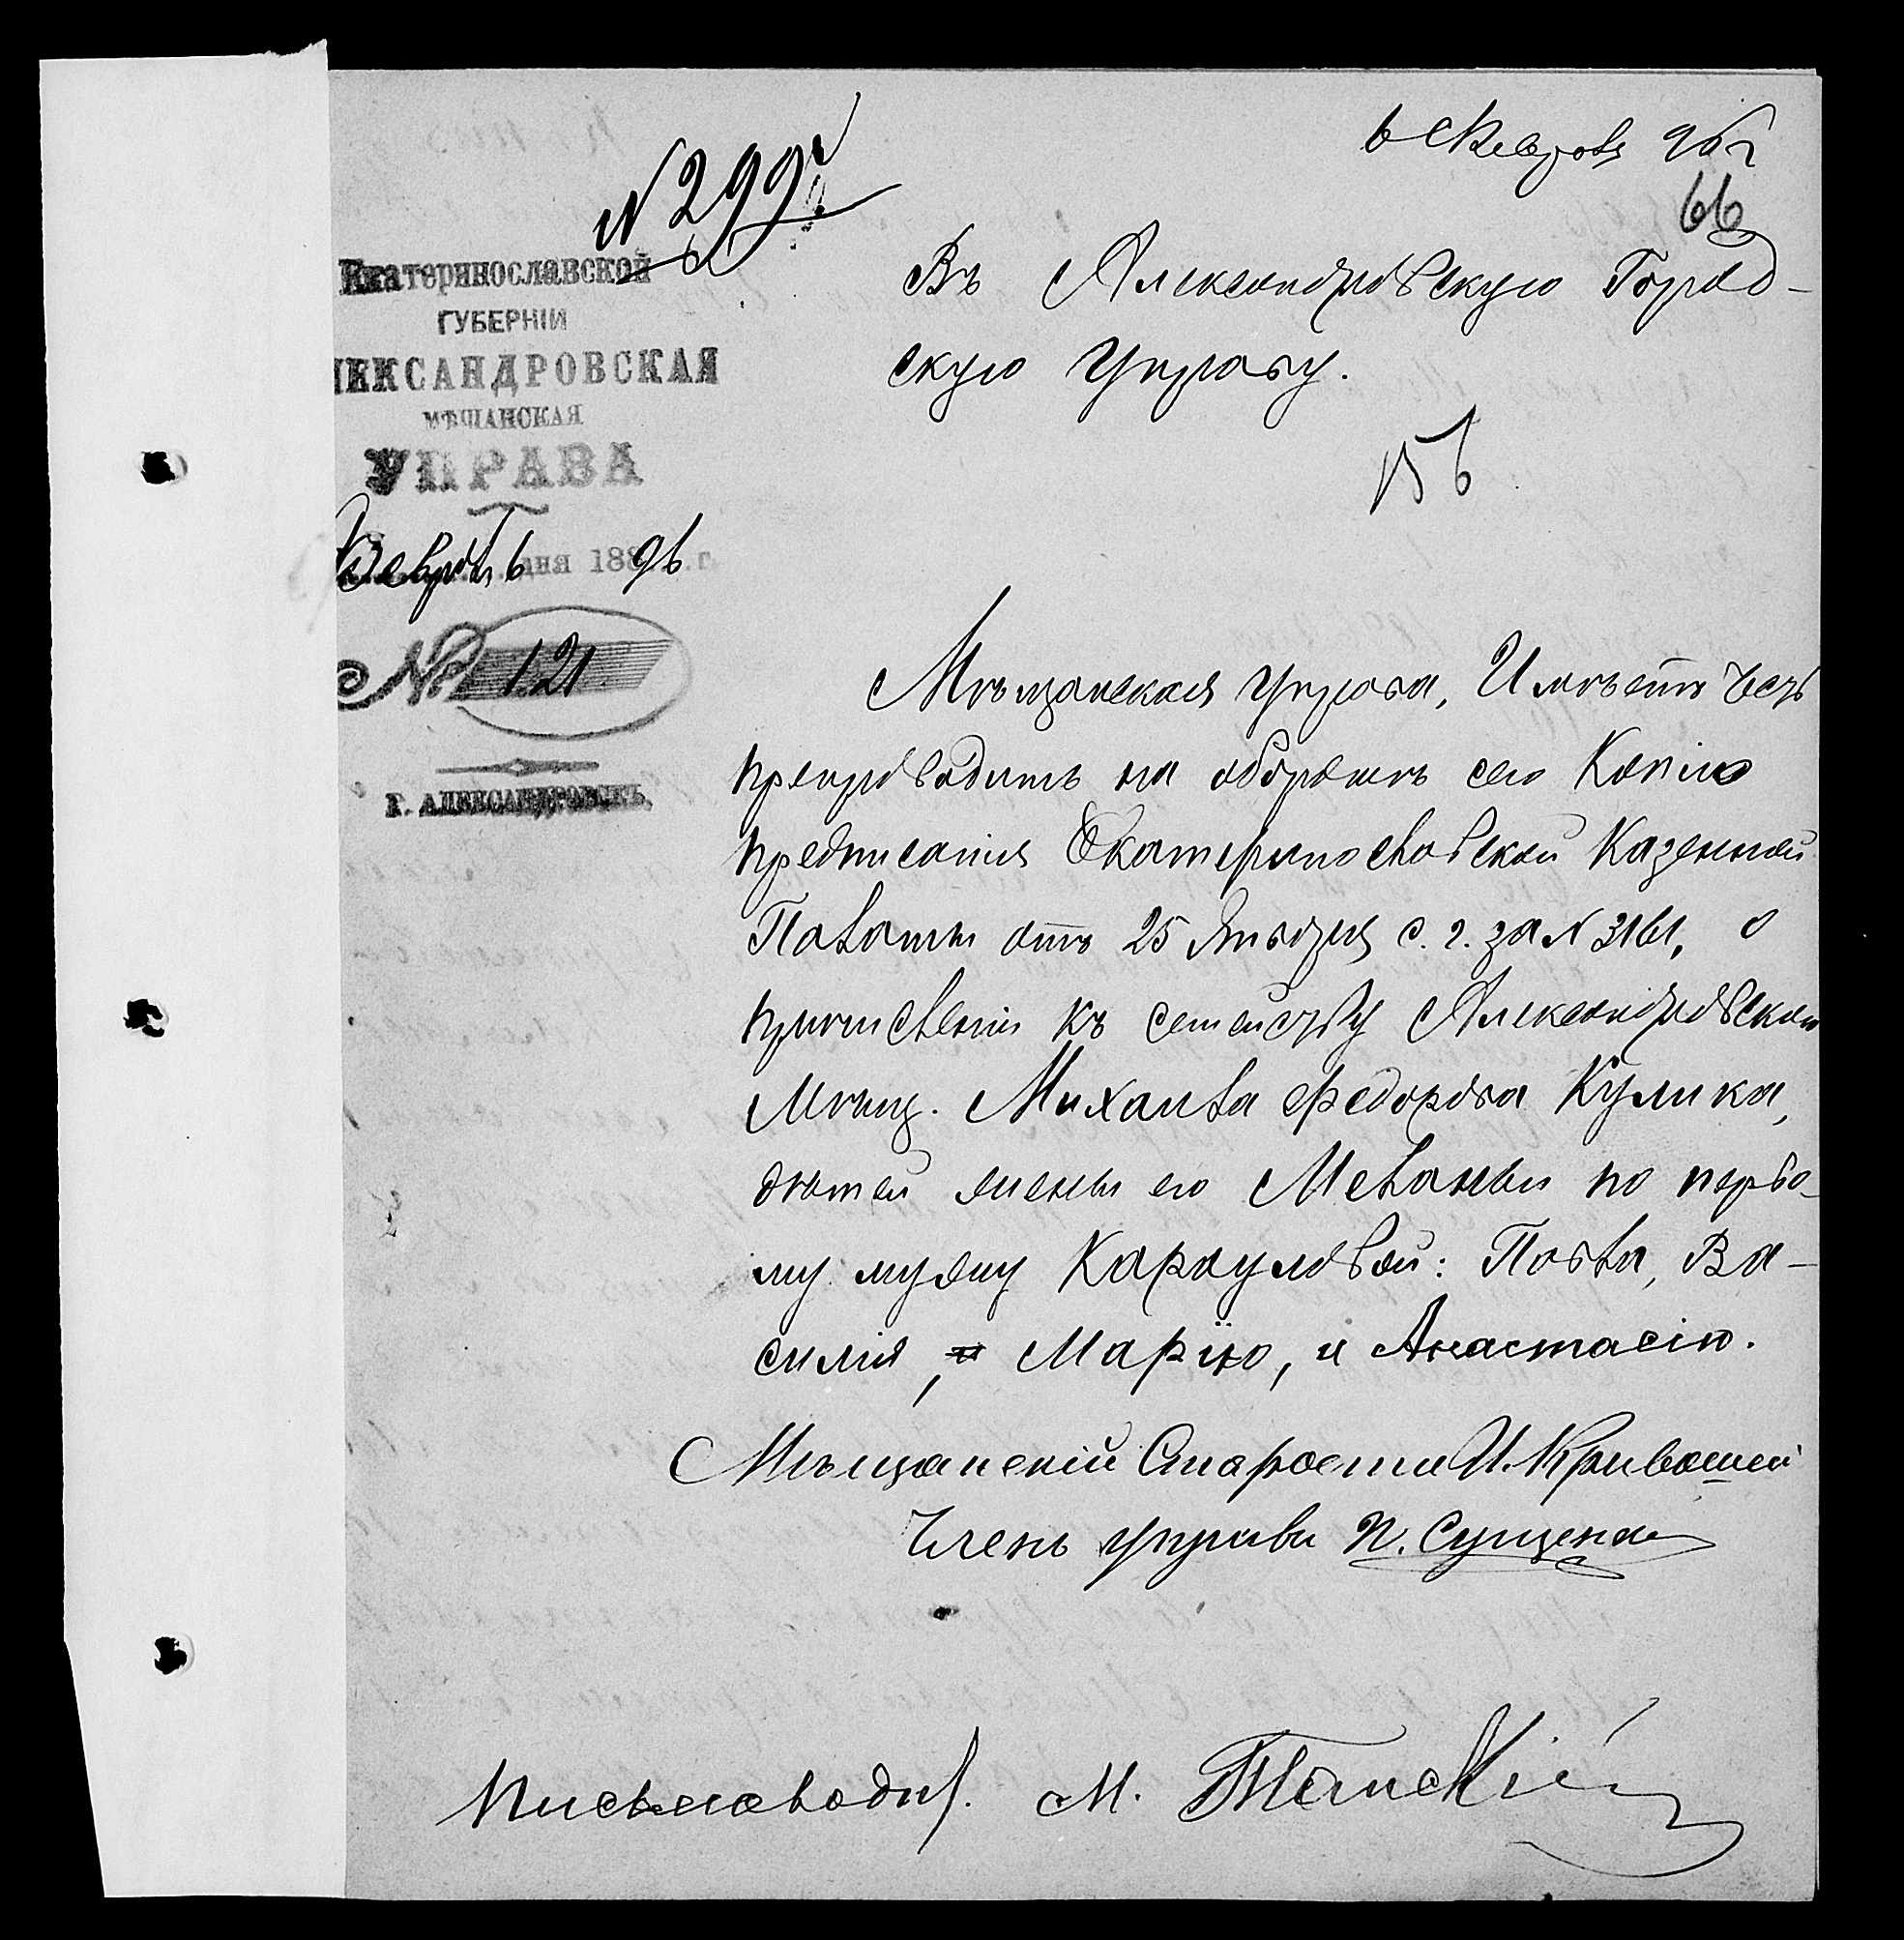 6 Февраля 96 г
66
№ 299
Екатеринославской
ГУБЕРНІИ
ЛЕКСАНДРОВСКАЯ
МѢЩАНСКАЯ
УПРАВА
Февраля 6 дня 188 96 г.
№ 121
Г. АЛЕКСАНДРОВСКЪ.
Въ Александровскую Город-
скую Управу.
156
Мѣщанская Управа, Имѣетъ честь
препроводить на оборотѣ сего Копію
предписанія Екатеринославской Казенной
Палаты отъ 25 Января с. г. за № 3161, о
причисленіи къ семейству Александровскаго
Мѣщ. Михаила Федорова Кулика,
дѣтей жены его Меланьи по перво-
му мужу Карауловой: Павла, Ва-
силія, Марію, и Анастасію.
Мѣщанскій Староста И. Кривошей
Членъ управы П. Сущенко
Письмоводит. М.